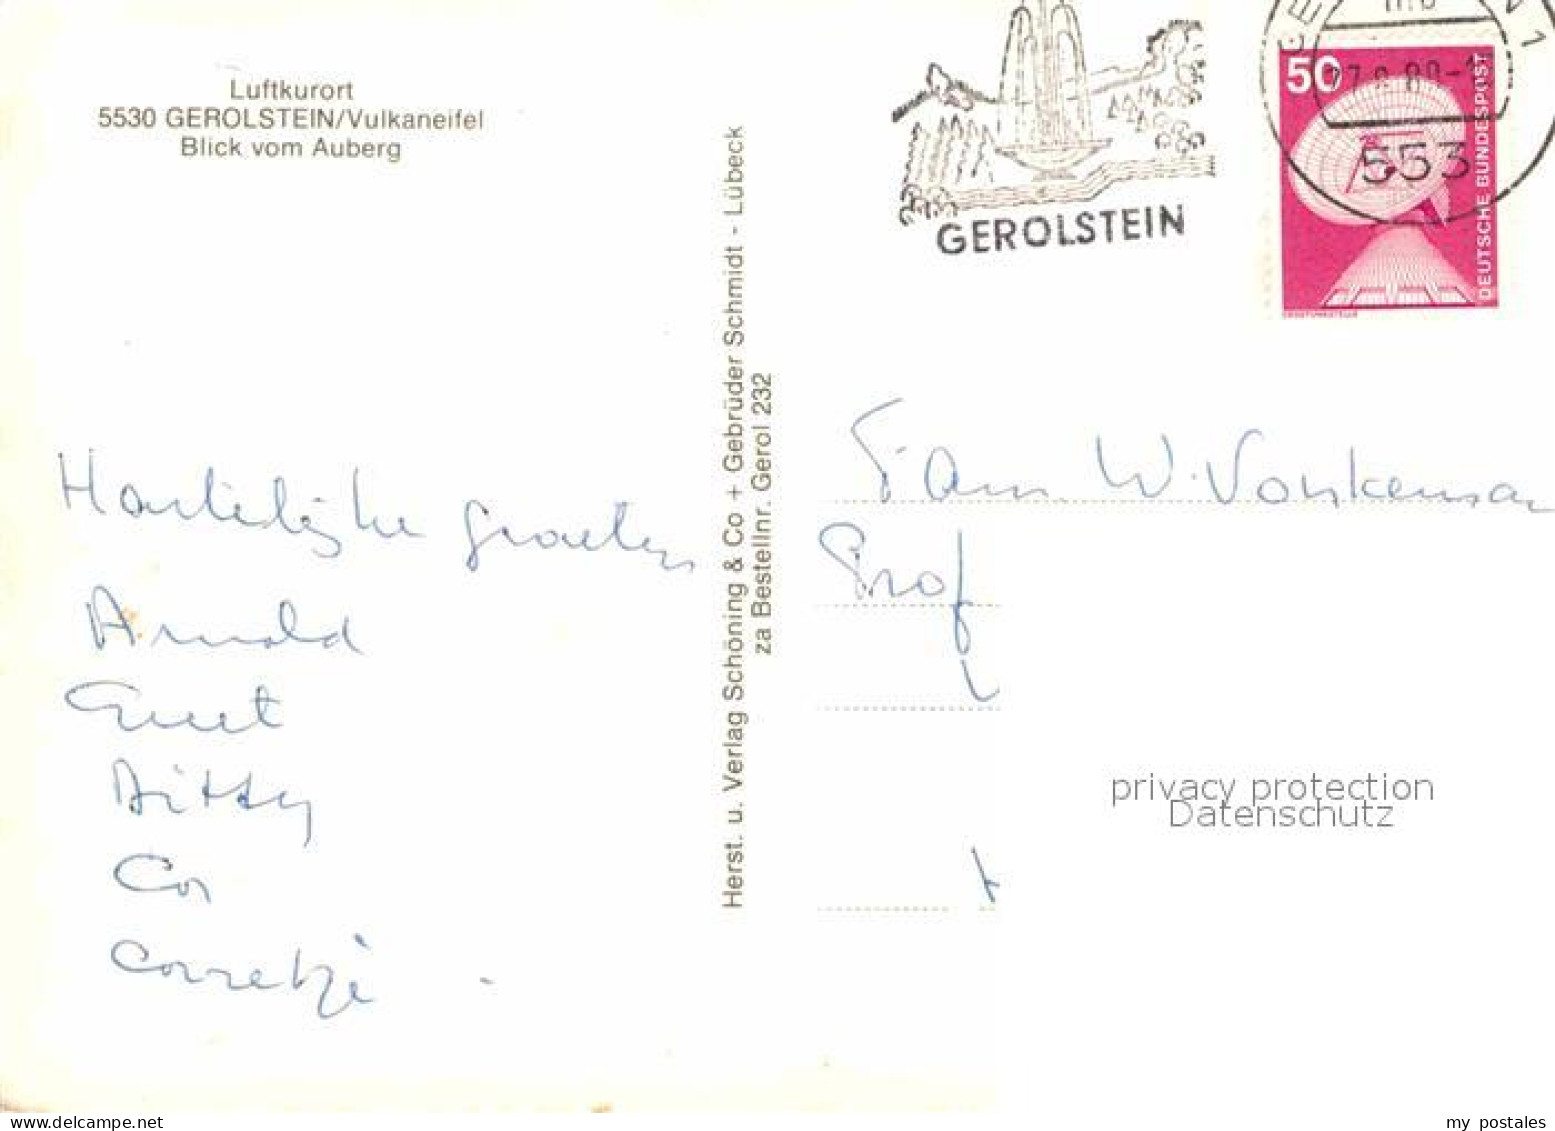 Luftkurort
5530 GEROLSTEIN/Vulkaneifel
Blick vom Auberg
Hartelijke groeten
Arnold
Greet
Ditty
Cor
Corretje
Herst. u. Verlag Schöning & Co + Gebrüder Schmidt - Lübeck
za Bestellnr. Gerol 232
GEROLSTEIN
50
DEUTSCHE BUNDESPOST
553
Fam W. Vonkeman
Prof
privacy protection
Datenschutz
www.delcampe.net
my_postales